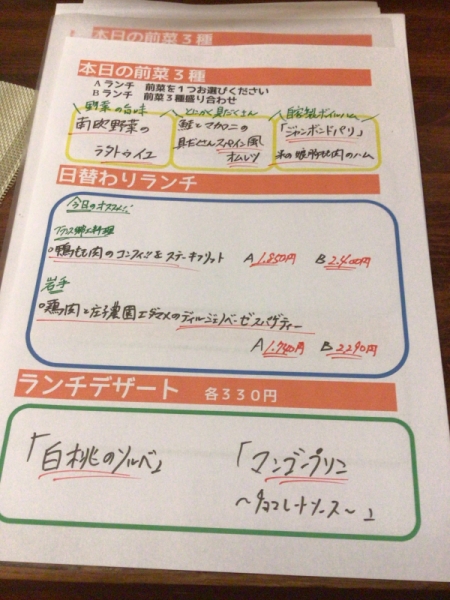 本日の前菜３種
本日の前菜３種
Ａランチ　前菜を１つお選びください
Ｂランチ　前菜３種盛り合わせ
野菜の旨味
南欧野菜の
ラタトゥイユ
とにかく具だくさん
鮭とマカロニの
具だくさんスペイン風
オムレツ
自家製ボイルハム
「ジャンボンドパリ」
豚肉のハム
日替わりランチ
今日のオススメ!!
フランス郷土料理
○鴨もも肉のコンフィとステークフリット　A 1.850円　B 2.400円
岩手
○鶏肉と庄子農園エダマメのディルジェノベーゼスパゲティー
A 1.740円　B 2.290円
ランチデザート　各３３０円
「白桃のソルベ」
「マンゴープリン
～チョコレートソース～」